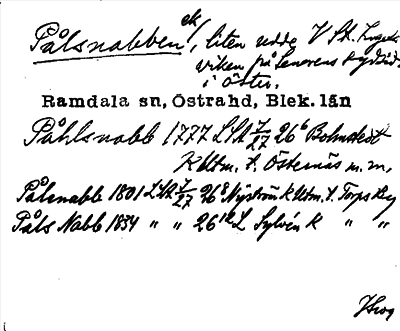 ek
Pålsnabben, liten udde V St.
viken på Senorens sydsida
i Öster.
Ramdala sn, Östrahd, Blek. län
Påhlsnabb 1777 LSA J/27 26⁶ Bohnstedt
K Utm. t. Östernäs m.m,
Pålsnabb 1801 LSA J/27 26⁸ Nyström K Utm. t. Torps By
Påls Nabb 1834 " " 26¹² L Sylvén K " "